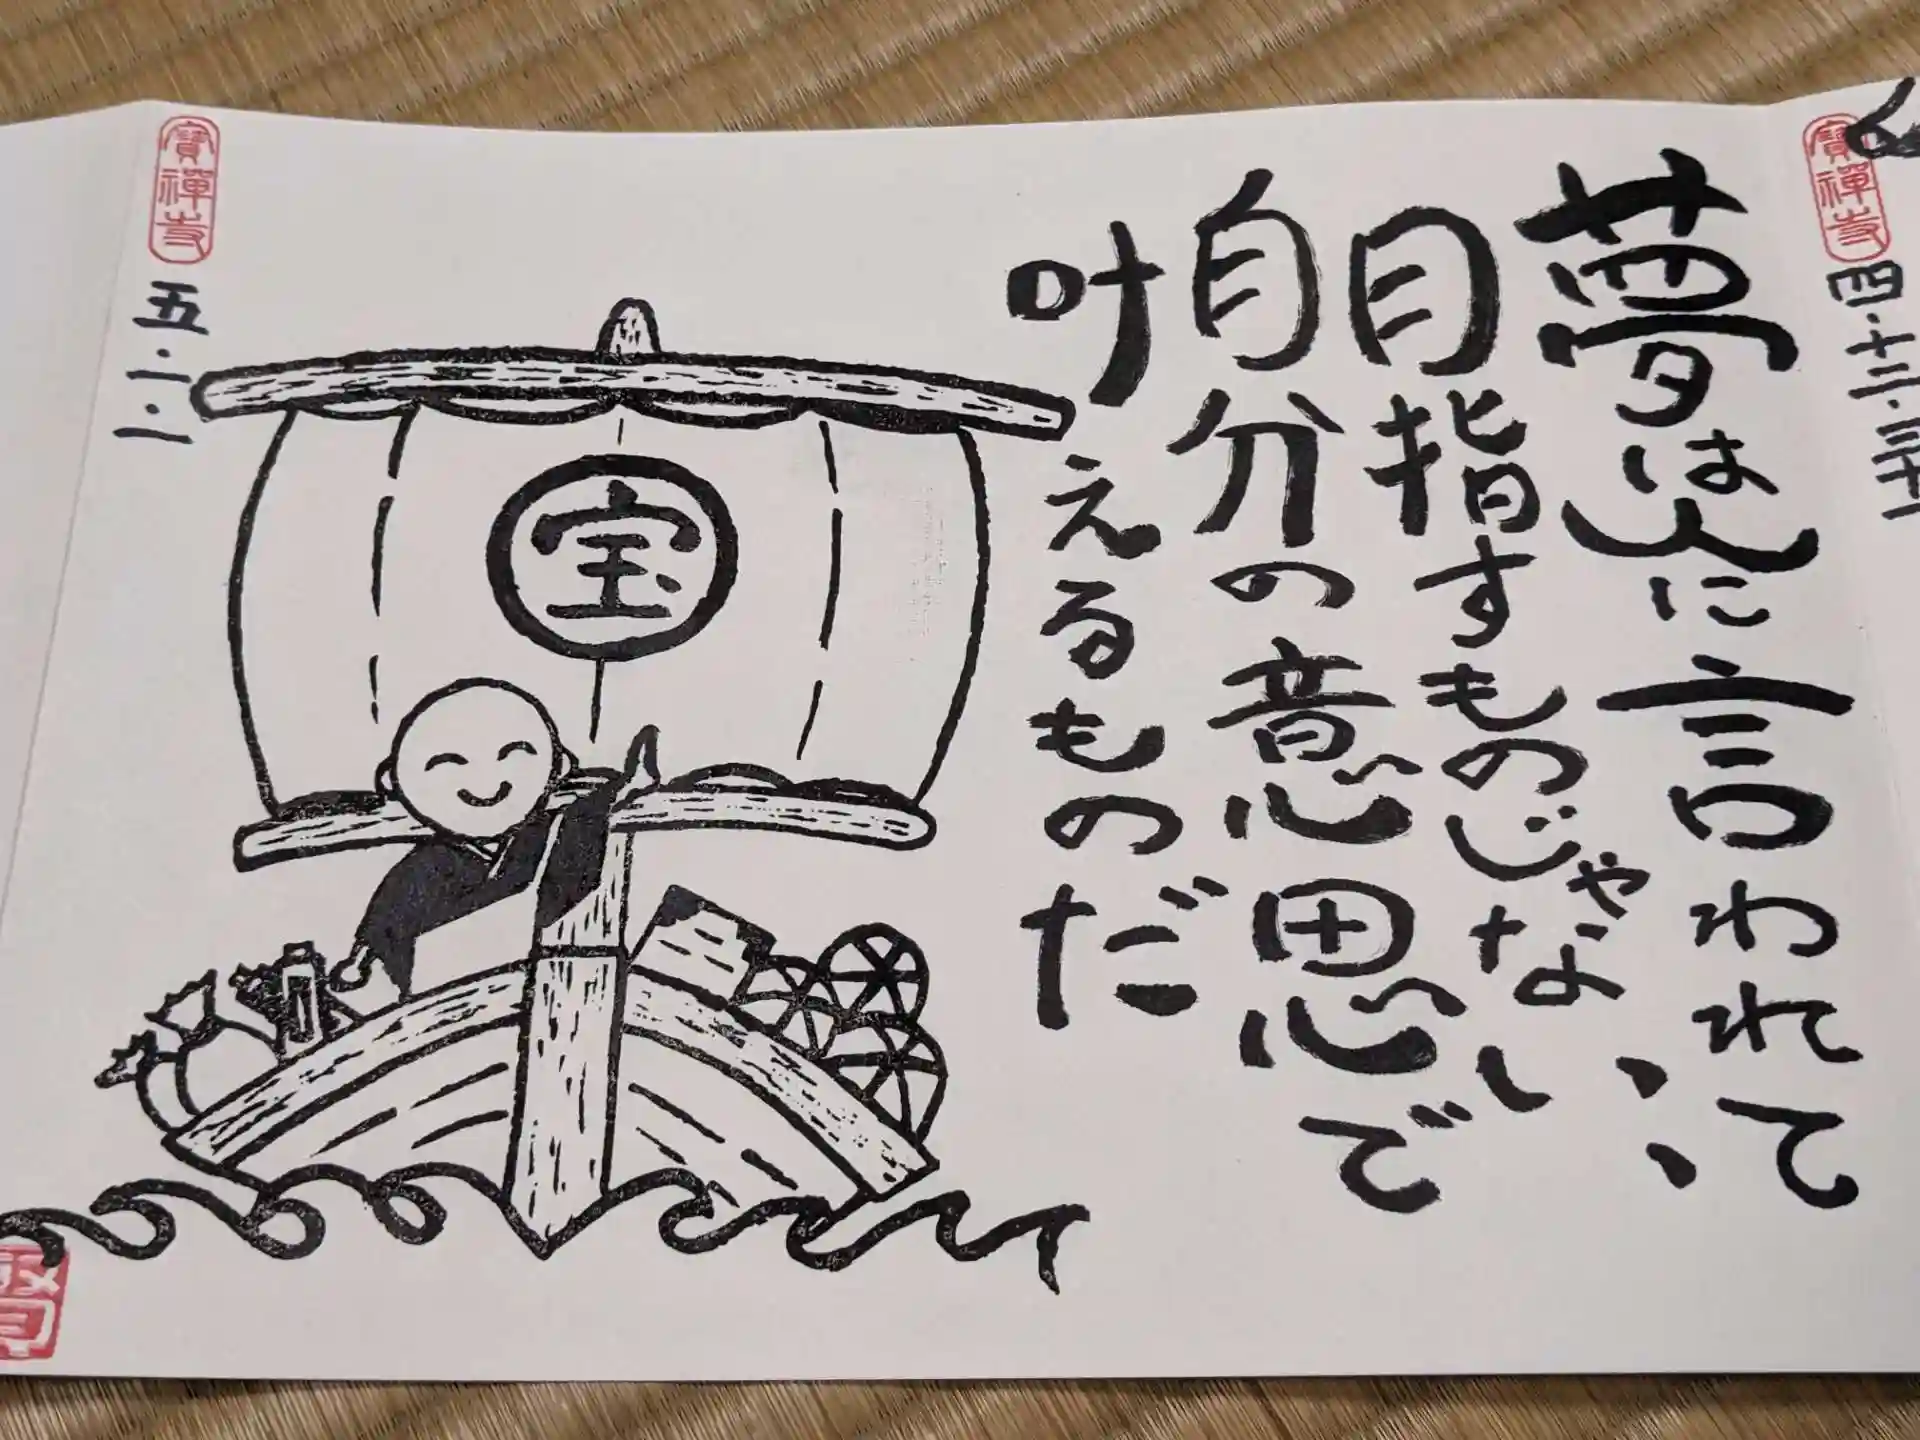 寳禪寺
四・十三・三十一
夢は人に言われて
目指すものじゃない、、
自分の意思で
叶えるものだ
宝
寳禪寺
五・一・一